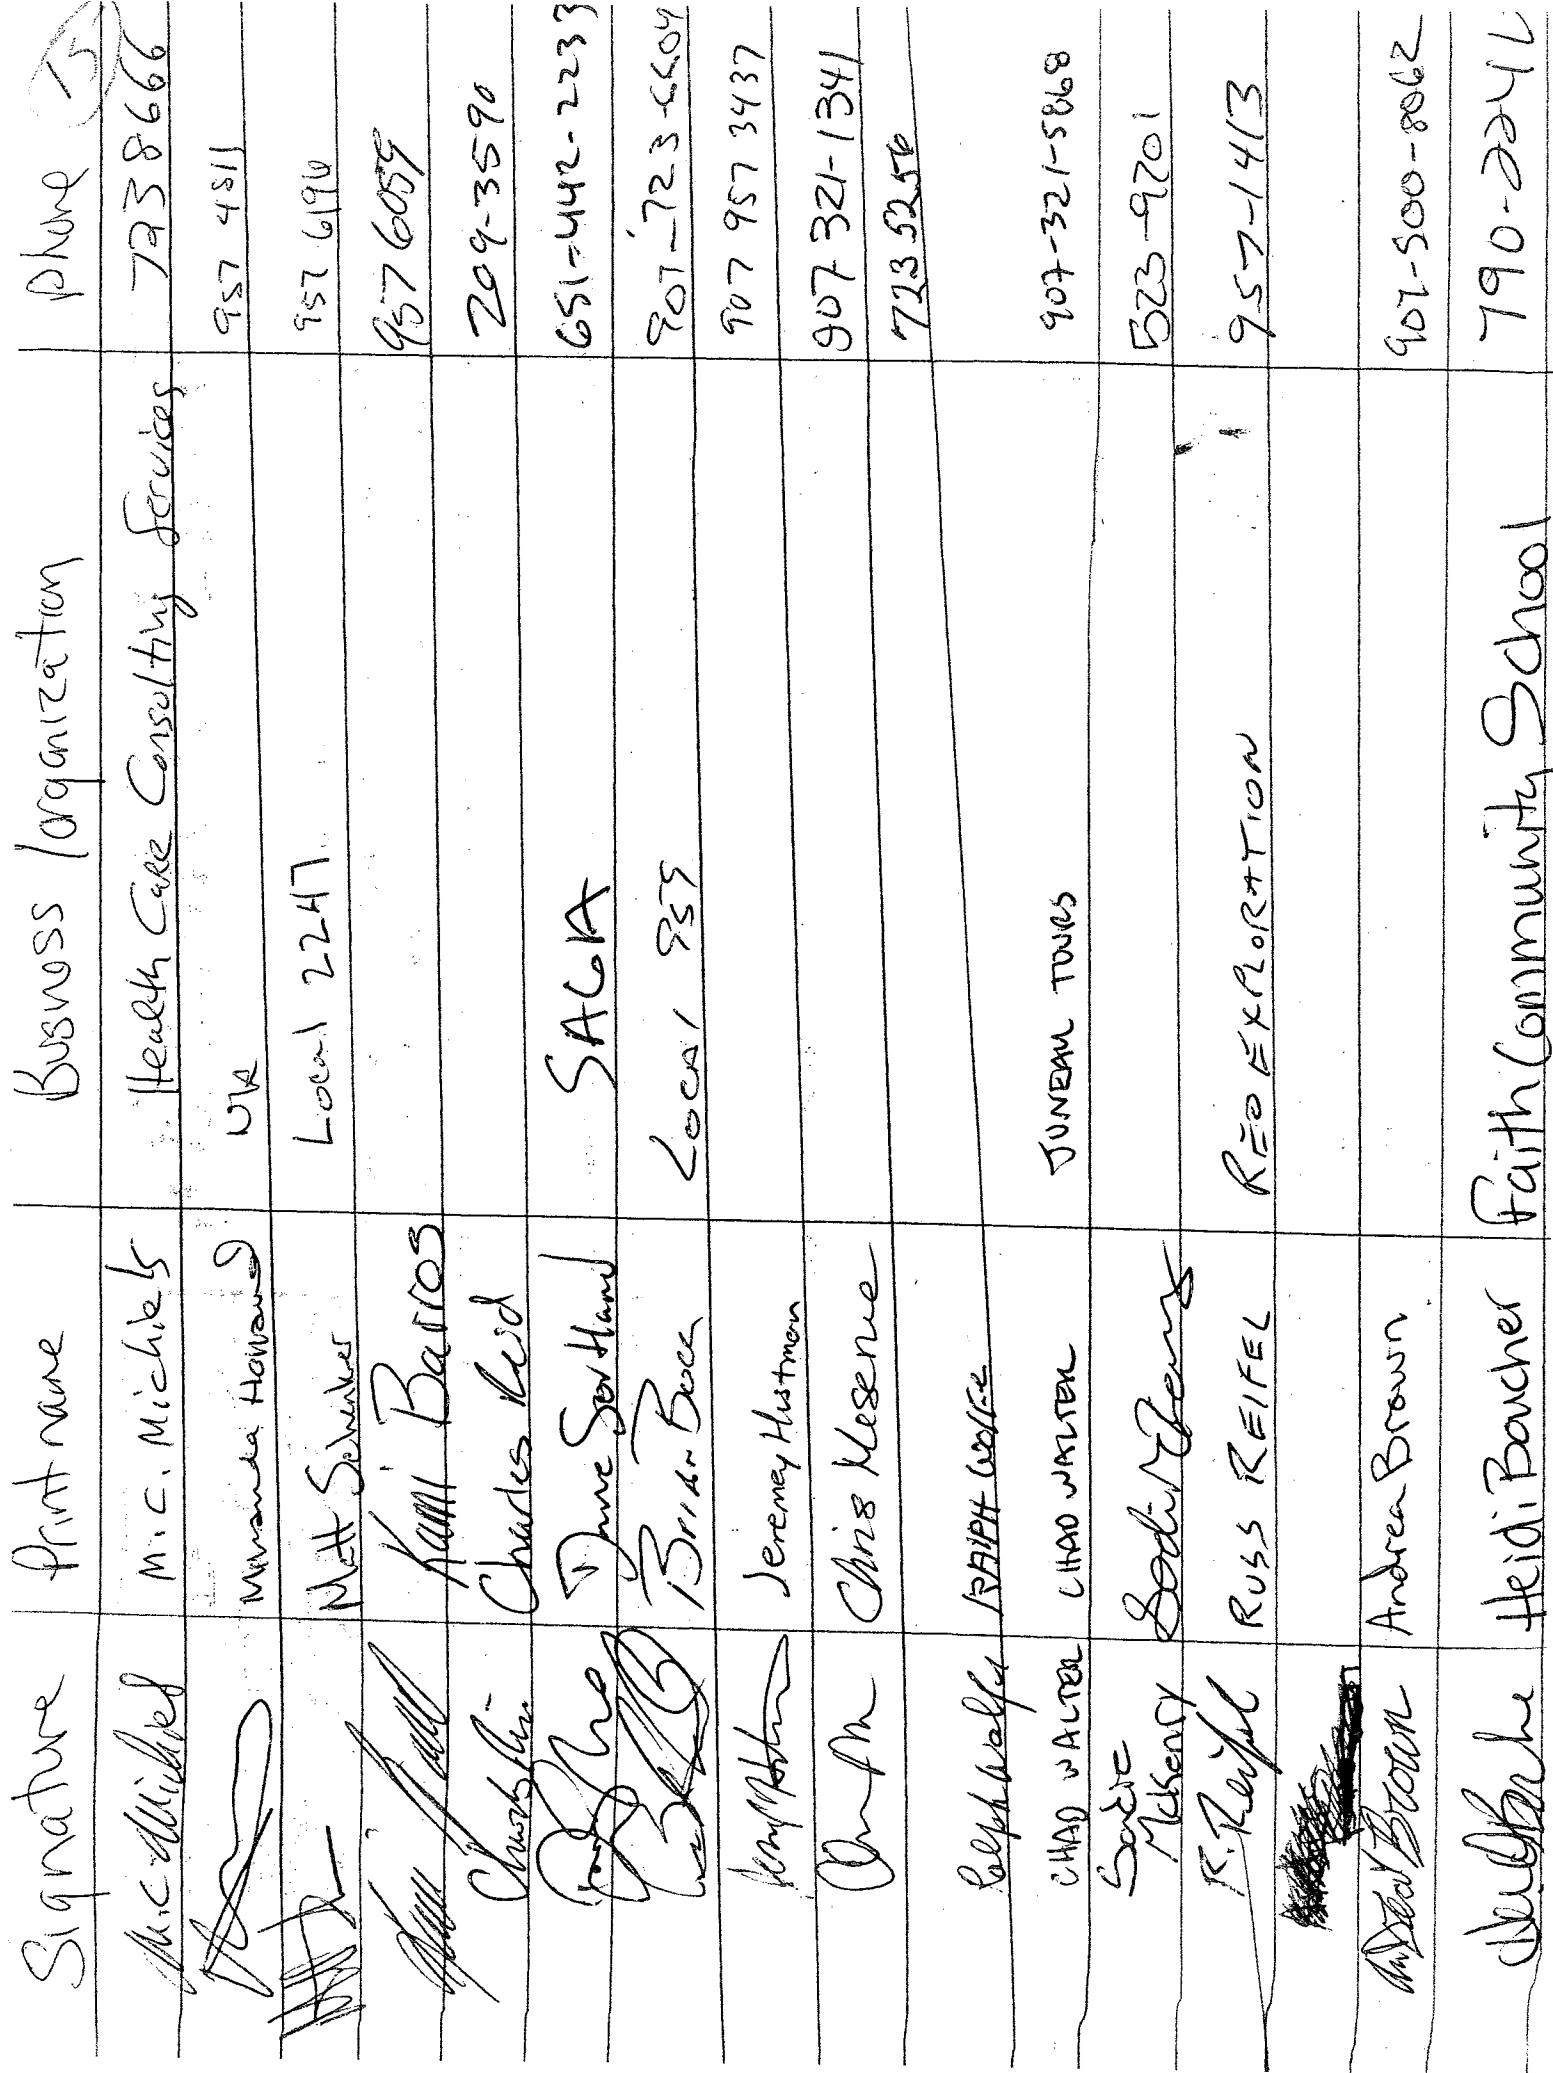 Signature Print name Business / organization phone 15
M.C. Michiels M.C. Michiels Health Care Consulting Services 723 8666
Miranda Howard 957 4511
Matt Schinker Local 2247 957 6196
Kami Barros 957 6059
Charles Reid 209-3590
SAGA 651-442-2233
Brian Bock Local 959 907-723-6604
Jeremey Hustmon 907 957 3437
Chris Meserve 907-321-1341
723 5256
Ralph Wolfe RALPH WOLFE
CHAD WALTER CHAD WALTER JUNEAU TOURS 907-321-5868
Sadie McKenry 523-9201
R. Reifel RUSS REIFEL REO EXPLORATION 957-1413
Andrea Brown Andrea Brown 907-500-8062
Heidi Boucher Faith Community School 790-2241